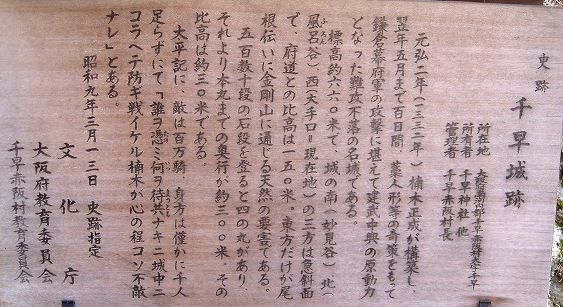 史跡 千早城跡
所在地 大阪府南河内郡千早赤阪村大字千早
所有者 千早神社 他
管理者 千早赤阪村長
元弘二年(一三三二年) 楠木正成が構築し、
翌年五月まで百日間、藁人形等の奇策をもって
鎌倉幕府軍の攻撃に堪えて建武中興の原動力
となった難攻不落の名城である。
標高約六六〇米で、城の南(妙見谷) 北(
風呂谷) 西(大手口ー現在地)の三方は急斜面
で、府道との比高は一五〇米・東方だけが尾
根伝いに金剛山に通じる天然の要害である。
五百数十段の石段を登ると四の丸があり、
それより本丸までの奥行が約三〇〇米 その
比高は約三〇米である。
太平記に、敵は百万騎、身方は僅かに千人
足らずにて「誰ヲ憑ミ何ヲ待共ナキニ城中ニ
コラヘテ防ギ戦イケル楠木が心の程コソ不敵
ナレ」とある。
昭和九年三月一三日 史跡指定
文化庁
大阪府教育委員会
千早赤阪村教育委員会